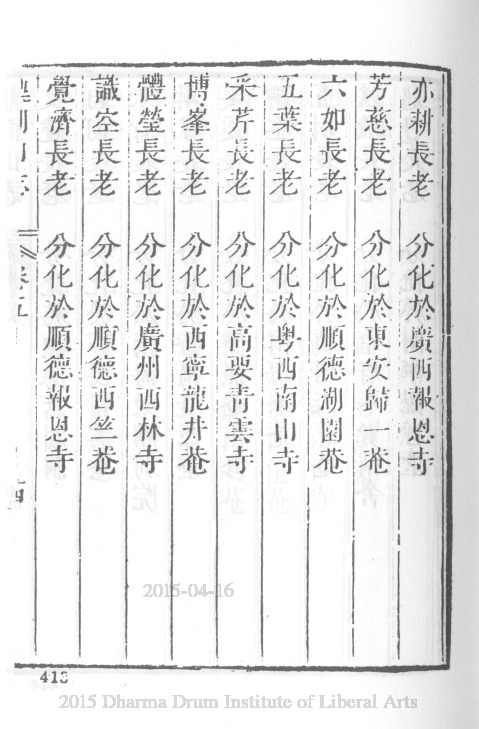 亦耕長老 分化於廣西報恩寺
芳慈長老 分化於東安歸一菴
六如長老 分化於順德湖園菴
五葉長老 分化於粤西南山寺
采芹長老 分化於高要青雲寺
博峯長老 分化於西寧龍井菴
體瑩長老 分化於廣州西林寺
識空長老 分化於順德西竺菴
覺濟長老 分化於順德報恩寺
卷五
2015-04-16
2015 Dharma Drum Institute of Liberal Arts